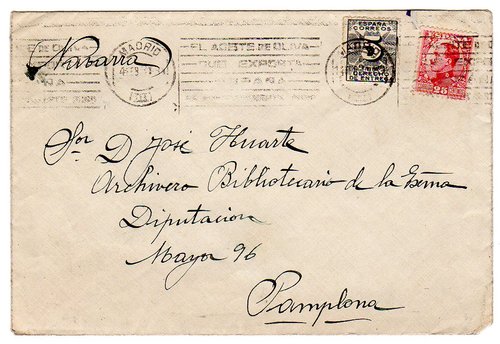 Navarra
MADRID
EL ACEITE DE OLIVA
QUE EXPORTA
ESPAÑA
ESPAÑA
CORREOS
DERECHO
DE ENTREGA
25
Sor. D José Huarte
Archivero Bibliotecario de la Exma
Diputacion
Mayor 96
Pamplona